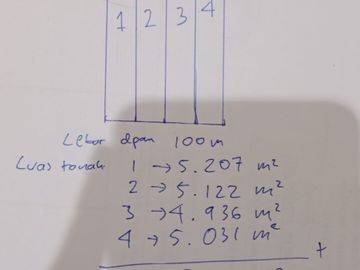 1 2 3 4
Lebar dpan 100 m
Luas tanah 1 → 5.207 m²
2 → 5.122 m²
3 → 4.936 m²
4 → 5.031 m²
+